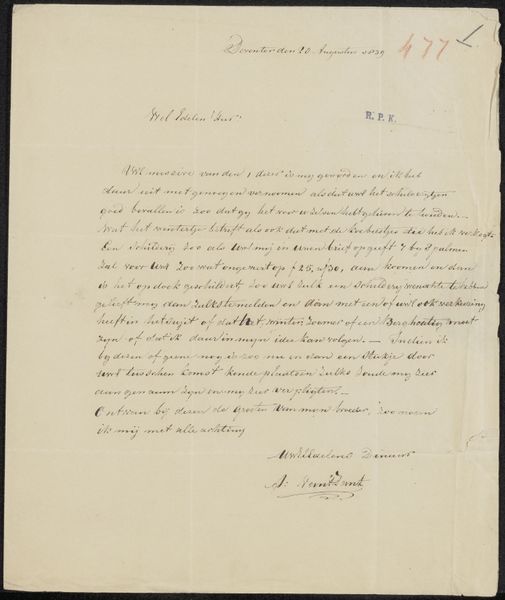 Deventer den 20 Augustus 1839
477
1
Wel Edelen Heer
R. P. K.
Uwe missive van den 1 dezer is my geworden en ik heb
daar uit met genoegen vernomen als dat uwe het schilderytjen
goed bevallen is zoo dat gy het voor u zelven hebt gelieven te houden
Wat het wintertje betreft als ook dat met de koebeestjes die heb ik verkogt
Een Schildery zoo als uw my in uwen brief op geeft 7 by 8 palmen
zal voor uwe zoo wat ongeveer op f 25, a/30, aan koomen en dan
is het op doek geschildert, zoo uwe zulk een schildery wenschte te hebben
geleeft my dan zulks te melden en dan met een of uwe ook verkiezing
heeft in het sujet of dat het winter, zoomer of een Berghoutig moet
zyn of dat ik daar in myn idee kan volgen. Indien ik
by dezen of geene nog is zoo nu en dan een Stukje door
uwe tusschen komst konde plaatsen zulks zoude my zeer
aangenaam zyn en my zeer verpligten
Ontvang by dezen de groeten van myn broeder, zoo noem
ik mij met alle achting
UwEdelens Dienaar